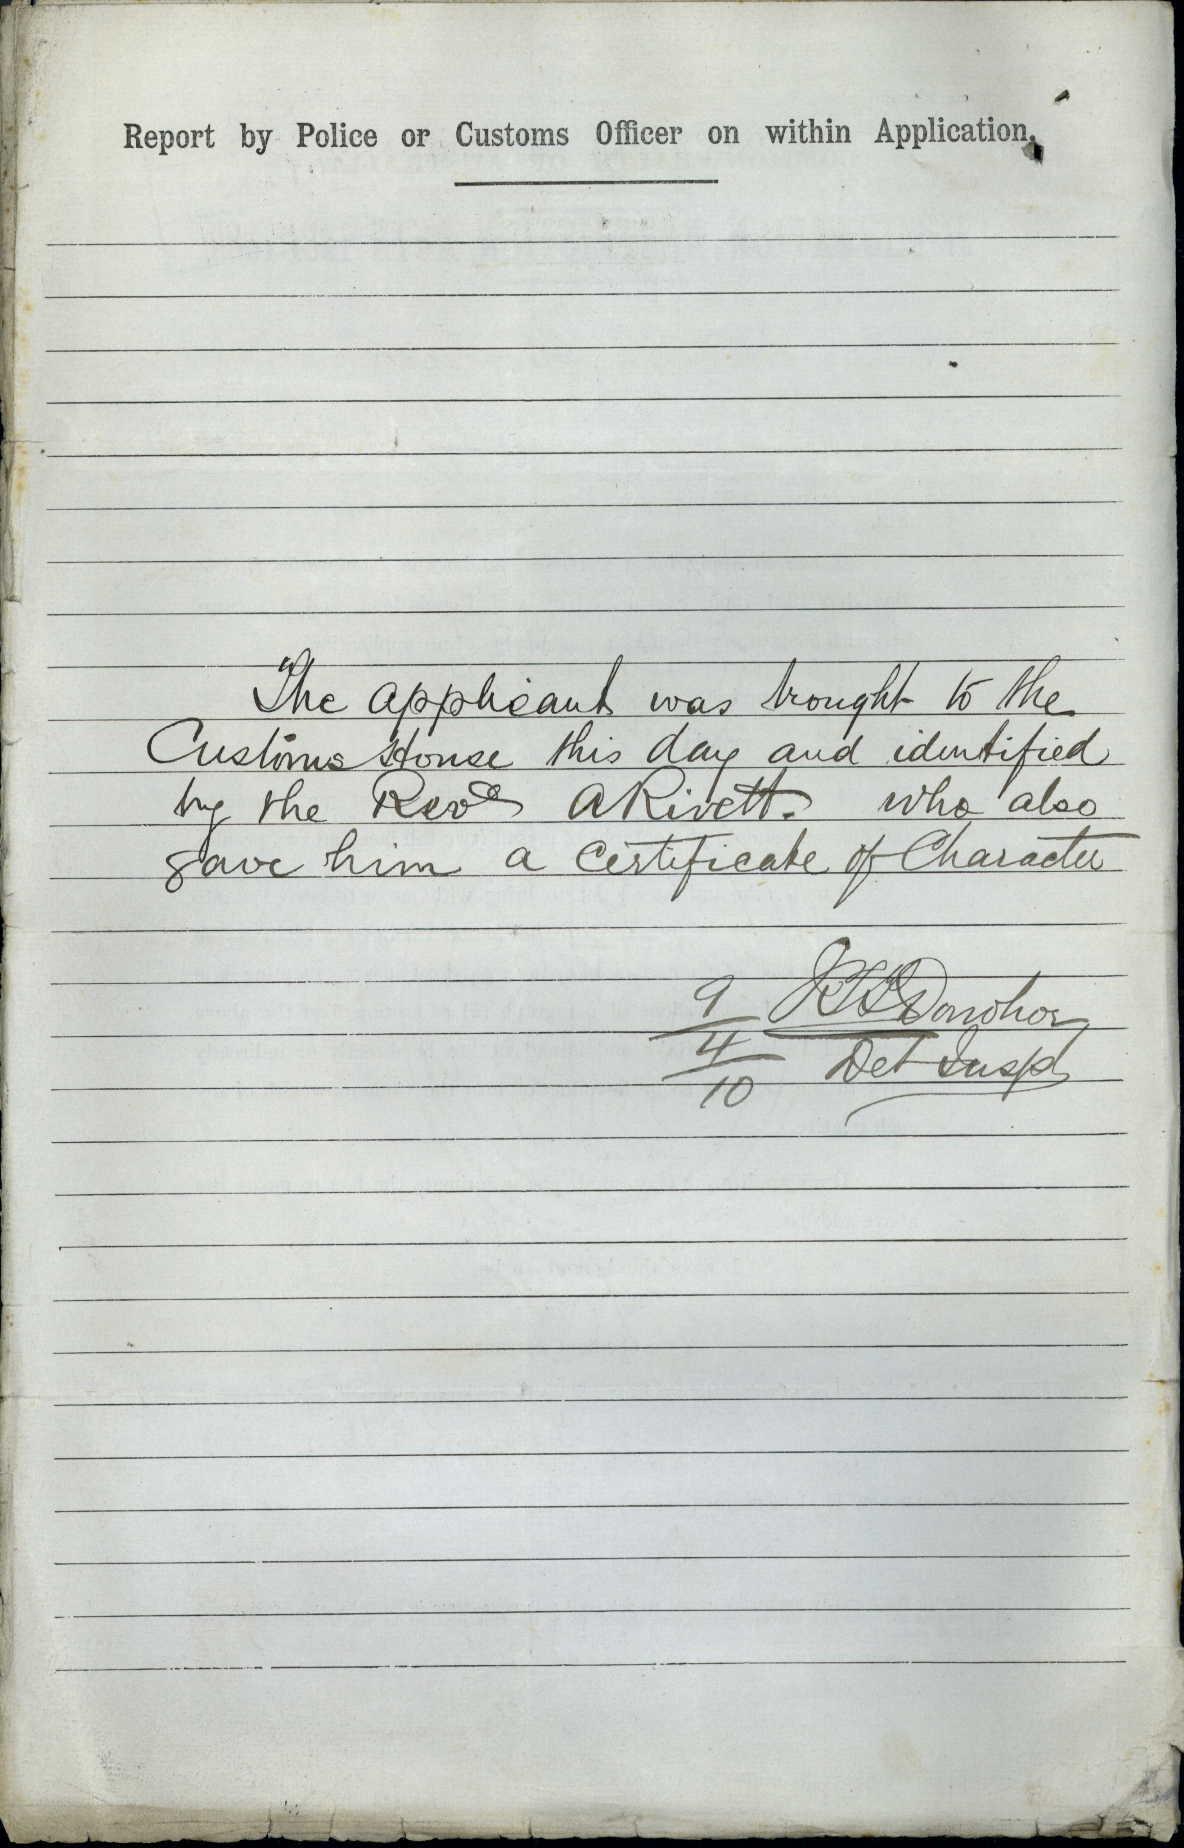 Report by Police or Customs Officer on within Application.
The applicant was brought to the
Customs House this day and identified
by the Revd A Rivett. who also
gave him a Certificate of Character
9/4/10
Donohoe
Det Insp